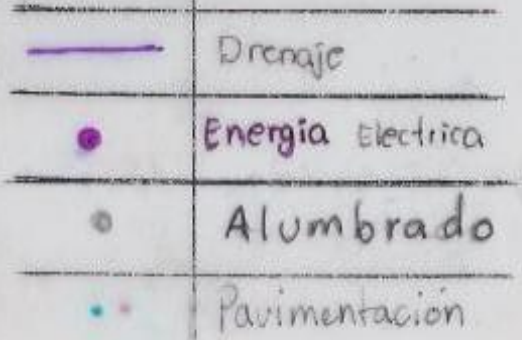 Drenaje
Energia Electrica
Alumbrado
Pavimentación